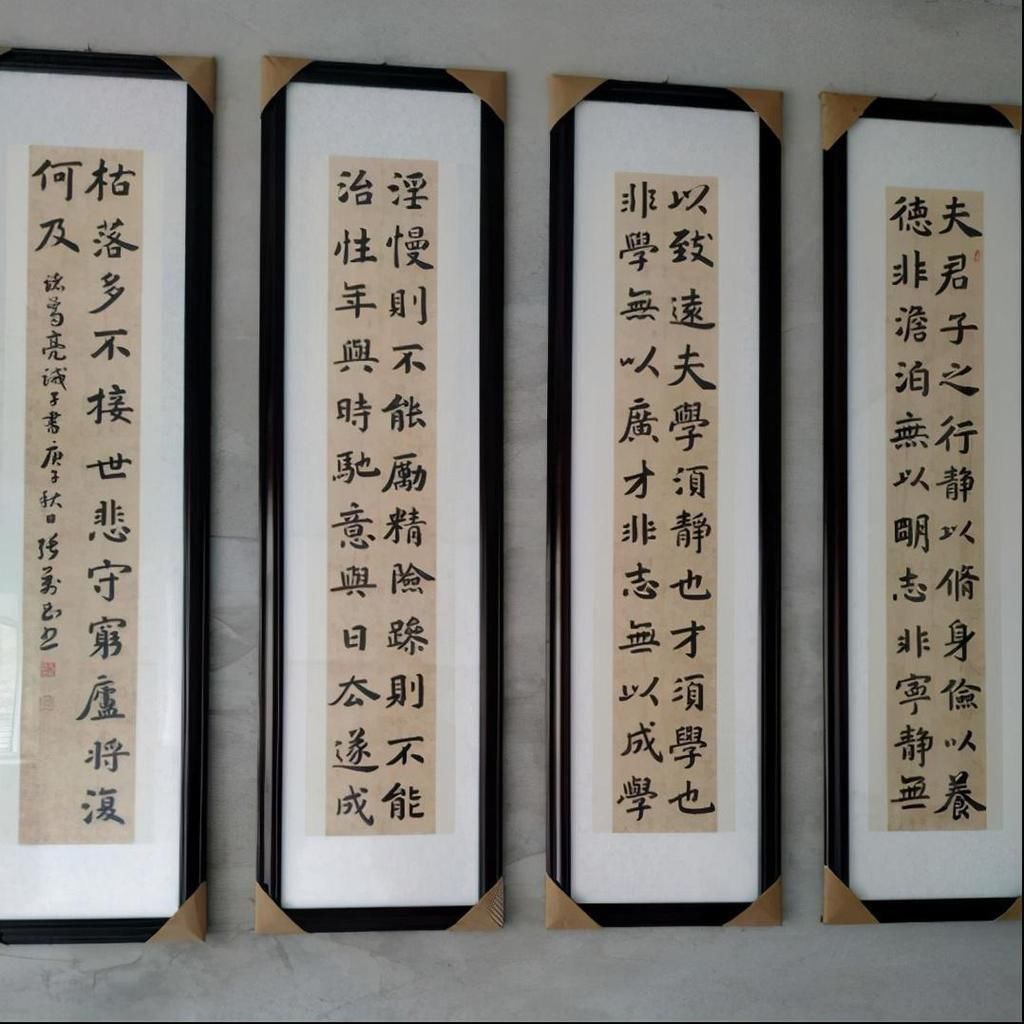 夫君子之行静以脩身儉以養
德非澹泊無以明志非寧静無
以致遠夫學須靜也才須學也
非學無以廣才非志無以成學
淫慢則不能勵精險躁則不能
治性年與時馳意與日去遂成
枯落多不接世悲守窮廬將復
何及
諸葛亮誡子書庚子秋日張